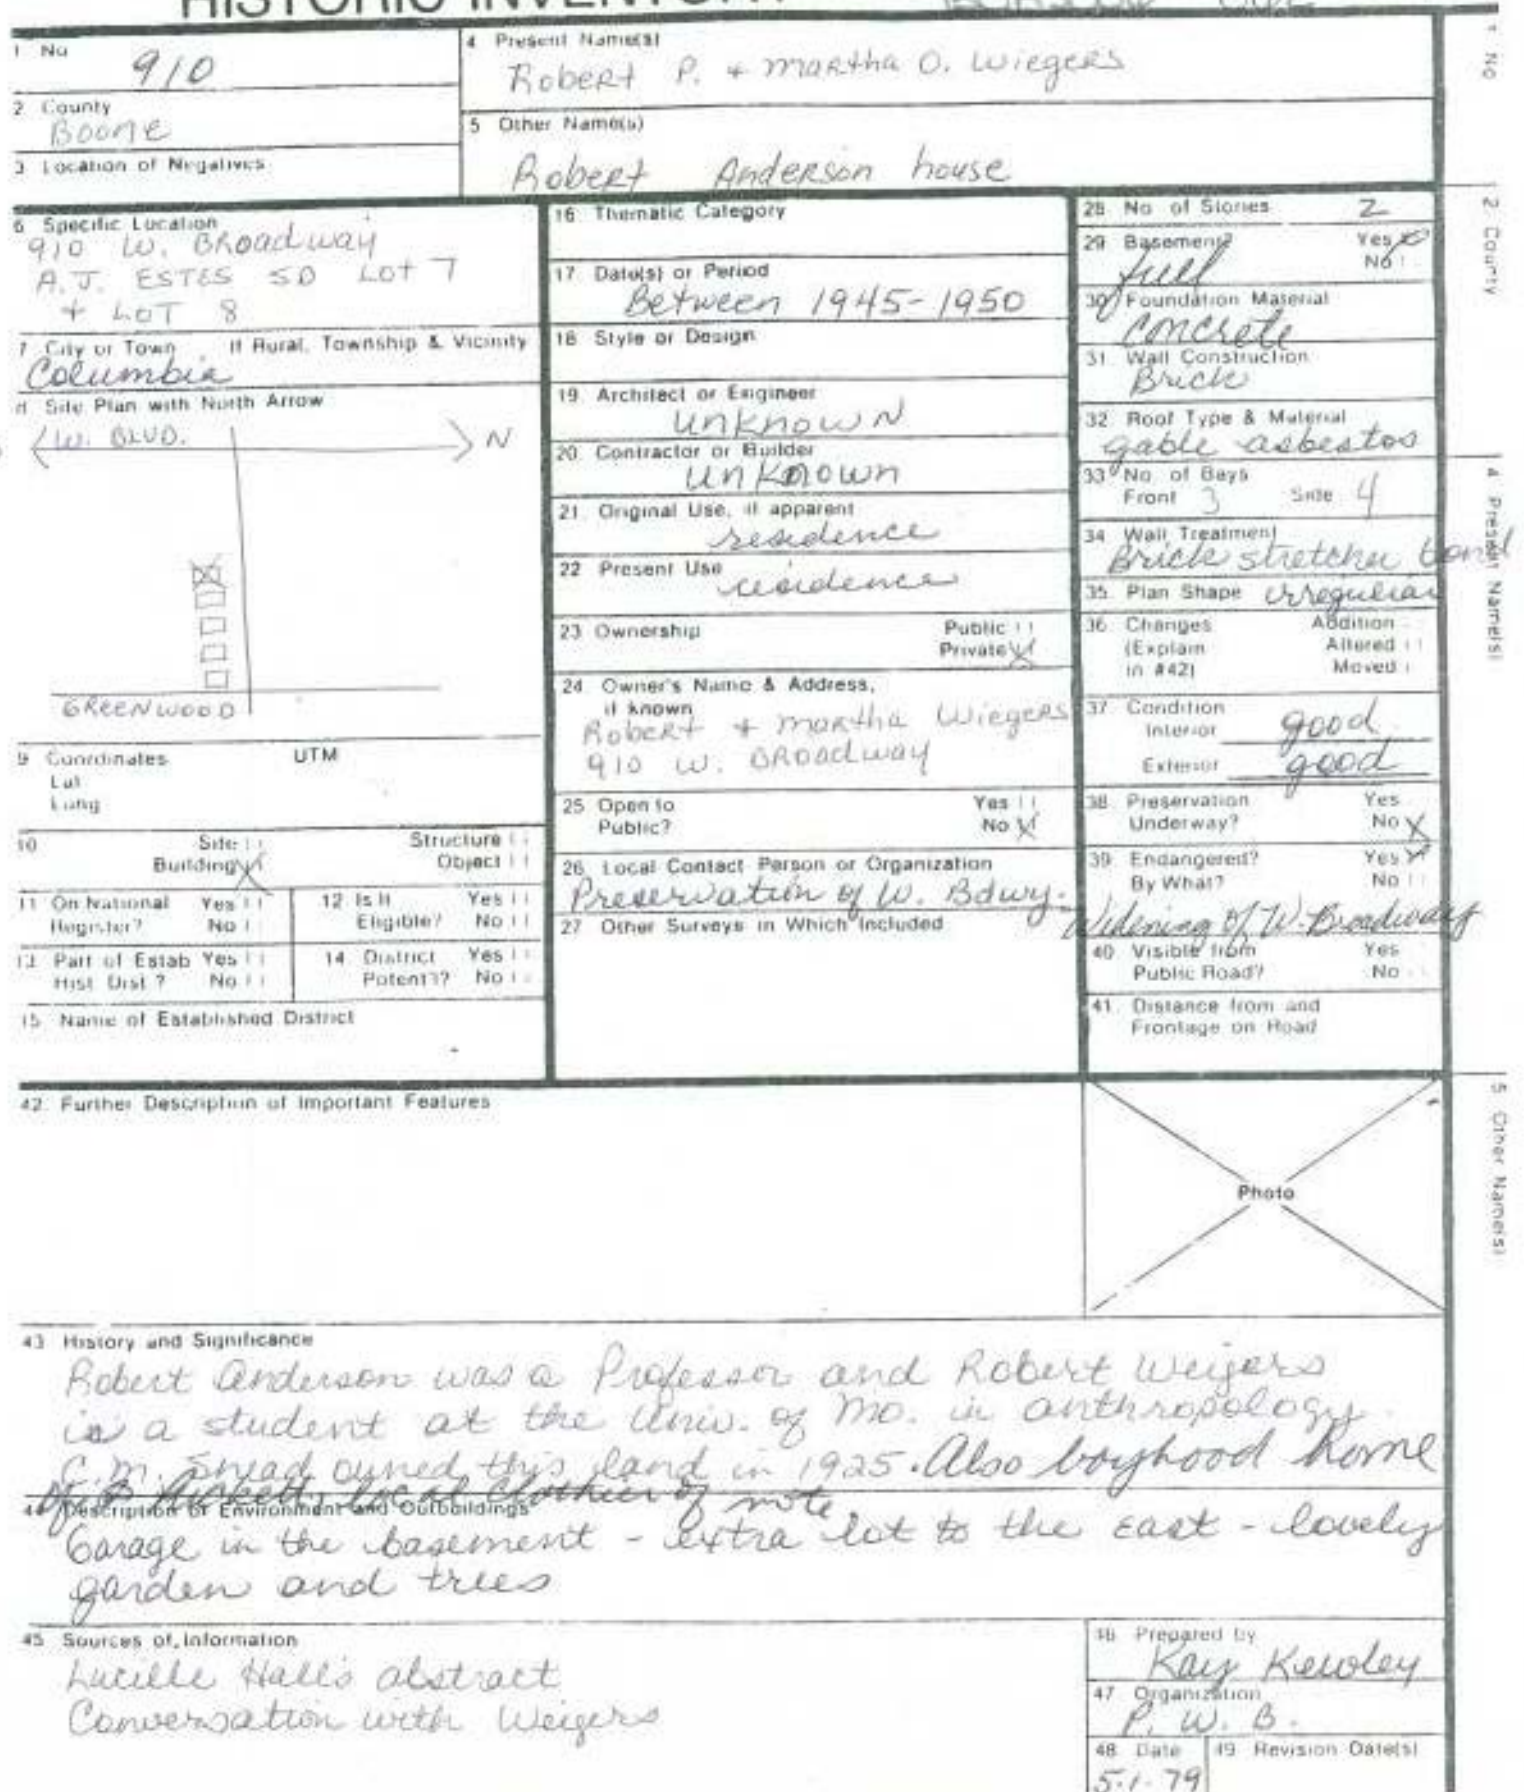 HISTORIC INVENTORY
1 No
910
4 Present Name(s)
Robert P. + Martha O. Wiegers
2 County
Boone
5 Other Name(s)
Robert Anderson house
3 Location of Negatives
6 Specific Location
910 W. Broadway
A.J. ESTES SD LOT 7
+ LOT 8
7 City or Town If Rural, Township & Vicinity
Columbia
8 Site Plan with North Arrow
W. BLVD. N
GREENWOOD
9 Coordinates UTM
Lat
Long
10 Site Structure
Building X Object
11 On National Register? Yes No
12 Is It Eligible? Yes No
13 Part of Estab Hist Dist? Yes No
14 District Potent'l? Yes No
15 Name of Established District
16 Thematic Category
17 Date(s) or Period
Between 1945-1950
18 Style or Design
19 Architect or Engineer
Unknown
20 Contractor or Builder
Unknown
21 Original Use, if apparent
residence
22 Present Use
residence
23 Ownership Public
Private X
24 Owner's Name & Address,
if known
Robert + Martha Wiegers
910 W. Broadway
25 Open to Yes
Public? No X
26 Local Contact Person or Organization
Preservation of W. Bdwy.
27 Other Surveys in Which Included
28 No of Stories 2
29 Basement? Yes X
No
full
30 Foundation Material
concrete
31 Wall Construction
Brick
32 Roof Type & Material
gable asbestos
33 No. of Bays
Front 3 Side 4
34 Wall Treatment
Brick stretcher bond
35 Plan Shape irregular
36 Changes Addition
(Explain Altered
in #42) Moved
37 Condition
Interior good
Exterior good
38 Preservation Yes
Underway? No X
39 Endangered? Yes X
By What? No
Widening of W. Broadway
40 Visible from Yes
Public Road? No
41 Distance from and
Frontage on Road
42 Further Description of Important Features
Photo
43 History and Significance
Robert Anderson was a Professor and Robert Weigers
is a student at the Univ. of Mo. in anthropology.
C.M. Snead owned this land in 1925. Also boyhood home
local clothier of note
44 Description of Environment and Outbuildings
Garage in the basement - extra lot to the east - lovely
garden and trees
45 Sources of Information
Lucille Hall's abstract
Conversation with Weigers
46 Prepared by
Kay Kewley
47 Organization
P. W. B.
48 Date
5-1-79
49 Revision Date(s)
1 No
2 County
4 Present Name(s)
5 Other Name(s)